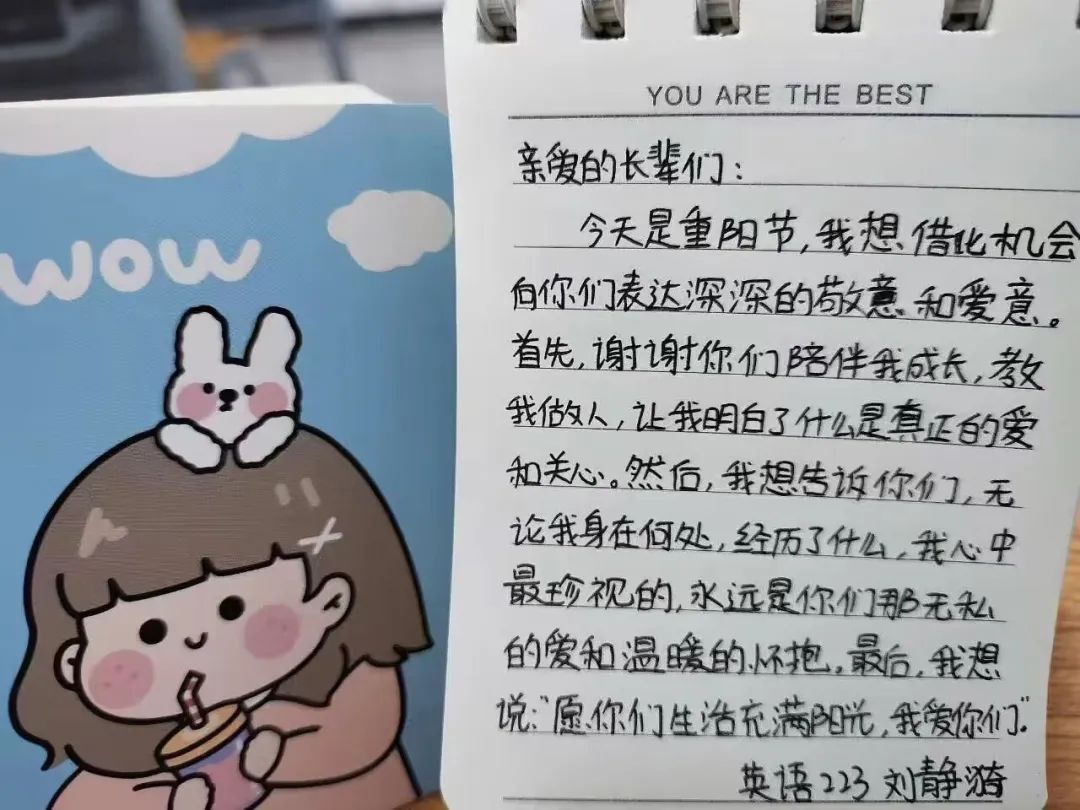 wow
YOU ARE THE BEST
亲爱的长辈们：
今天是重阳节，我想借此机会
向你们表达深深的敬意和爱意。
首先，谢谢你们陪伴我成长，教
我做人，让我明白了什么是真正的爱
和关心。然后，我想告诉你们，无
论我身在何处，经历了什么，我心中
最珍视的，永远是你们那无私
的爱和温暖的怀抱。最后，我想
说：“愿你们生活充满阳光，我爱你们”。
英语223 刘静漪